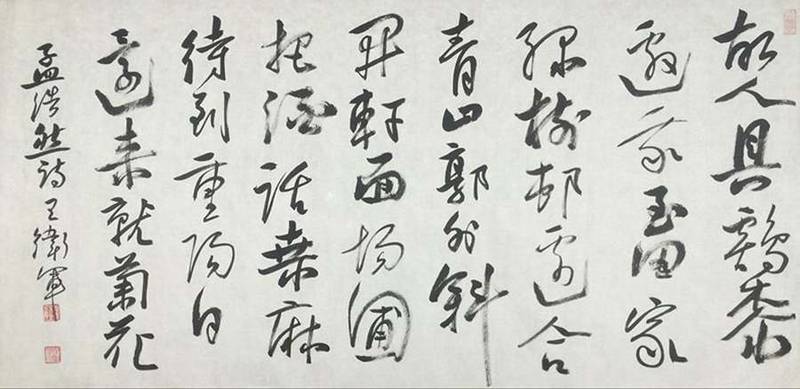 故人具鷄黍
邀我至田家
綠樹邨邊合
青山郭外斜
開軒面場圃
把酒話桑麻
待到重陽日
還來就菊花
孟浩然詩王衛軍